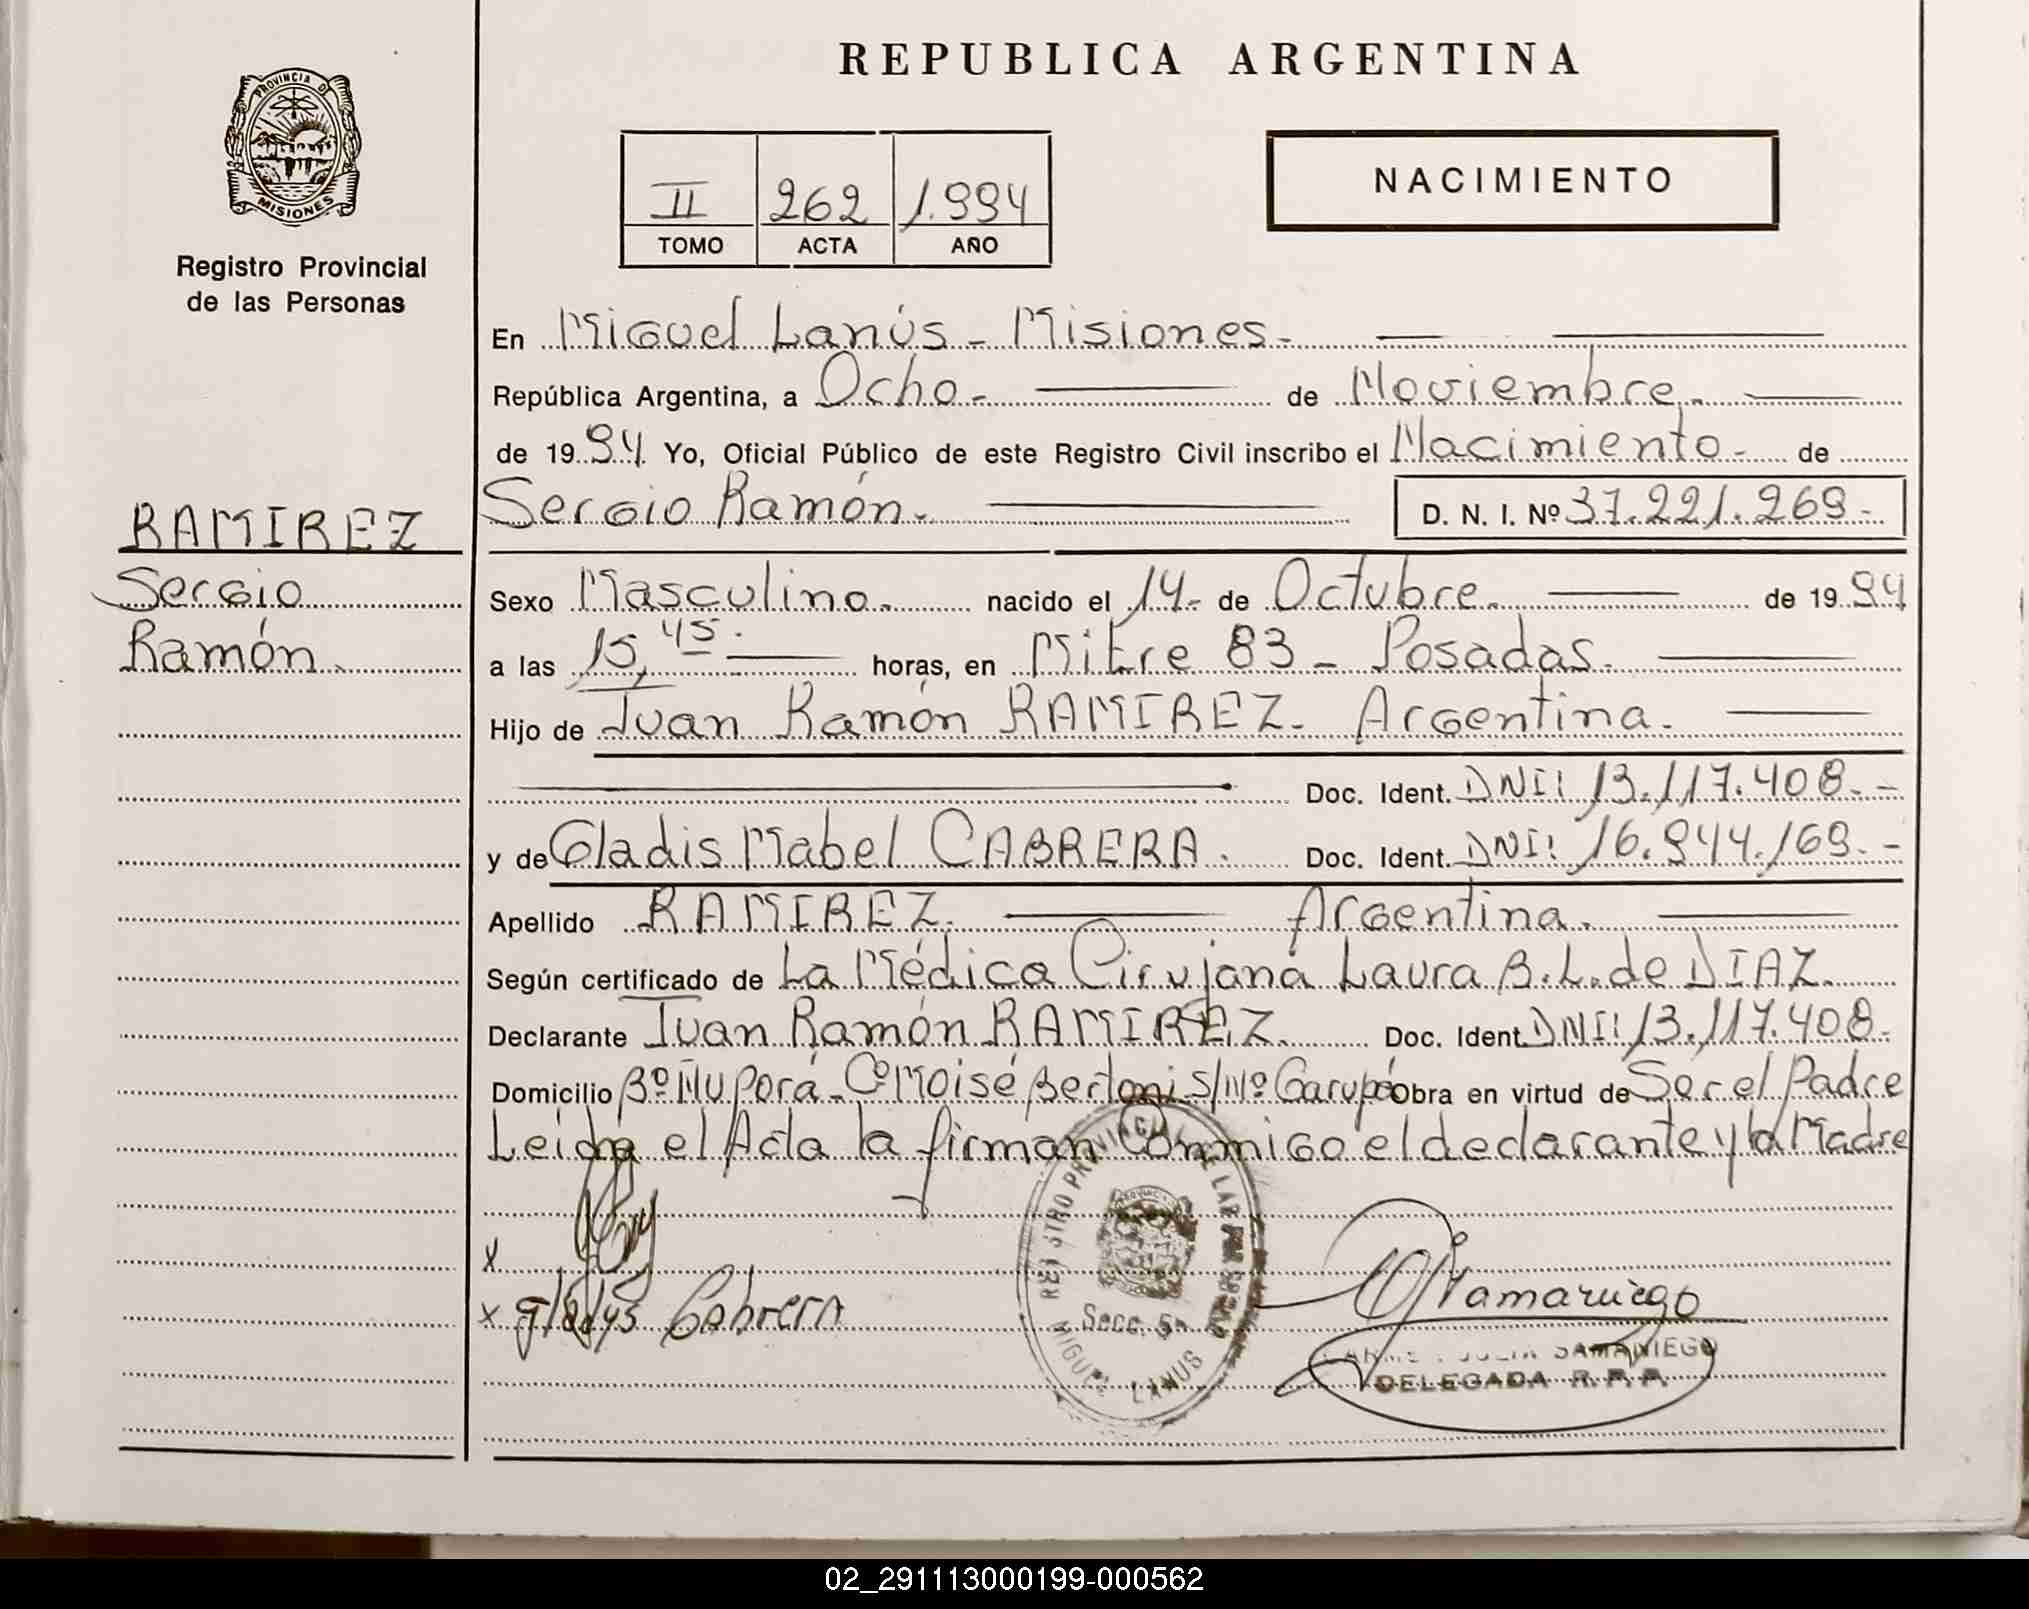 REPUBLICA ARGENTINA
PROVINCIA DE
MISIONES
Registro Provincial
de las Personas
II 262 1.994
TOMO ACTA AÑO
NACIMIENTO
En Miguel Lanús - Misiones.
República Argentina, a Ocho. de Noviembre.
de 19 94 Yo, Oficial Público de este Registro Civil inscribo el Nacimiento. de
Sergio Ramón. D. N. I. Nº 37.221.269.-
RAMIREZ
Sergio
Ramón.
Sexo Masculino. nacido el 14. de Octubre. de 19 94
a las 15,45. horas, en Mitre 83 - Posadas.
Hijo de Juan Ramón RAMIREZ. Argentina.
Doc. Ident. DNI: 13.117.408.-
y de Gladis Mabel CABRERA. Doc. Ident. DNI: 16.944.169.-
Apellido RAMIREZ. Argentina.
Según certificado de La Médica Cirujana Laura B.L. de DIAZ.
Declarante Juan Ramón RAMIREZ. Doc. Ident. DNI: 13.117.408.
Domicilio Bº Ñu Porá - Cº Moisé Bertoni S/Nº Garupá Obra en virtud de Ser el Padre
Leida el Acta la firman Conmigo el declarante y la Madre
x
x Gladys Cabrera
REGISTRO PROVINCIAL DE LAS PERSONAS
Secc. 5ª
MIGUEL LANUS
JULIA SAMANIEGO
DELEGADA R.P.P.
02_291113000199-000562